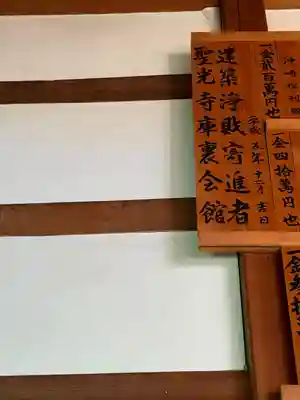 聖光寺庫裏会館
建築浄財寄進者
平成五年十二月吉日
一金貮百萬円也
一金四拾萬円也